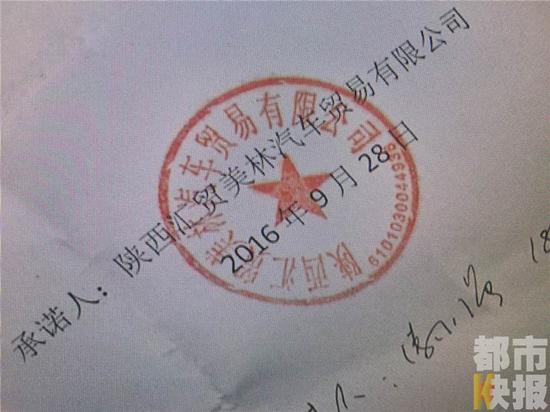 承诺人：陕西汇贸美林汽车贸易有限公司
2016年9月28日
陕西汇贸美林汽车贸易有限公司
6101030044936
18
都市
快报